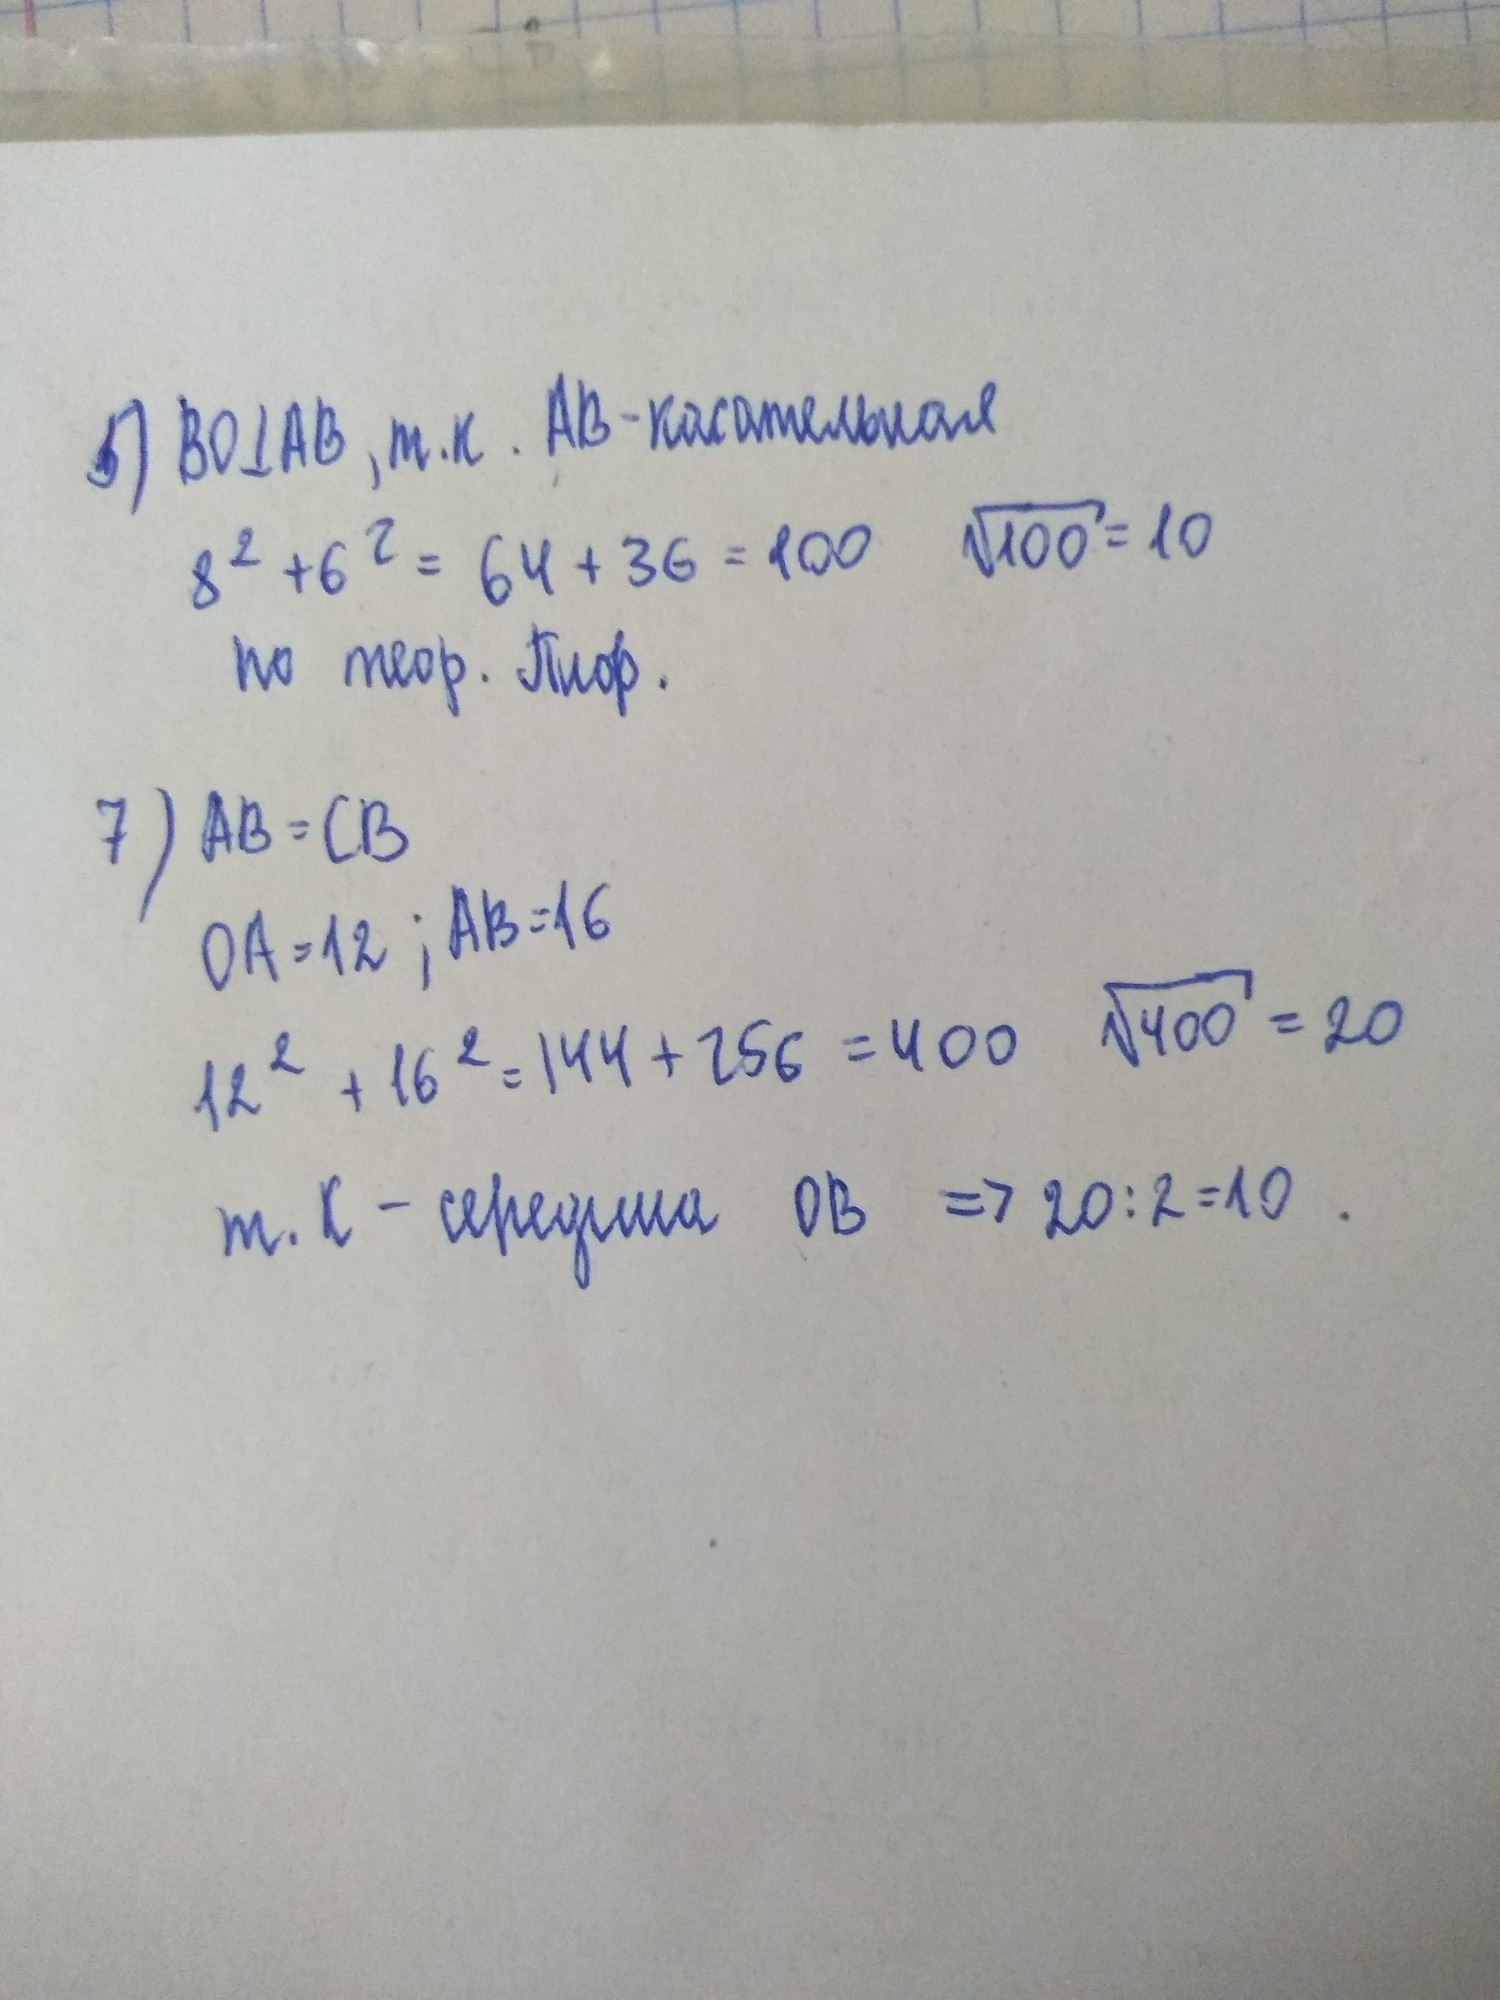 5) BO⊥AB, т.к. AB-касательная
8² + 6² = 64 + 36 = 100 √100 = 10
по теор. Пиф.
7) AB = CB
OA = 12 ; AB = 16
12² + 16² = 144 + 256 = 400 √400 = 20
т. К - середина OB => 20:2=10.